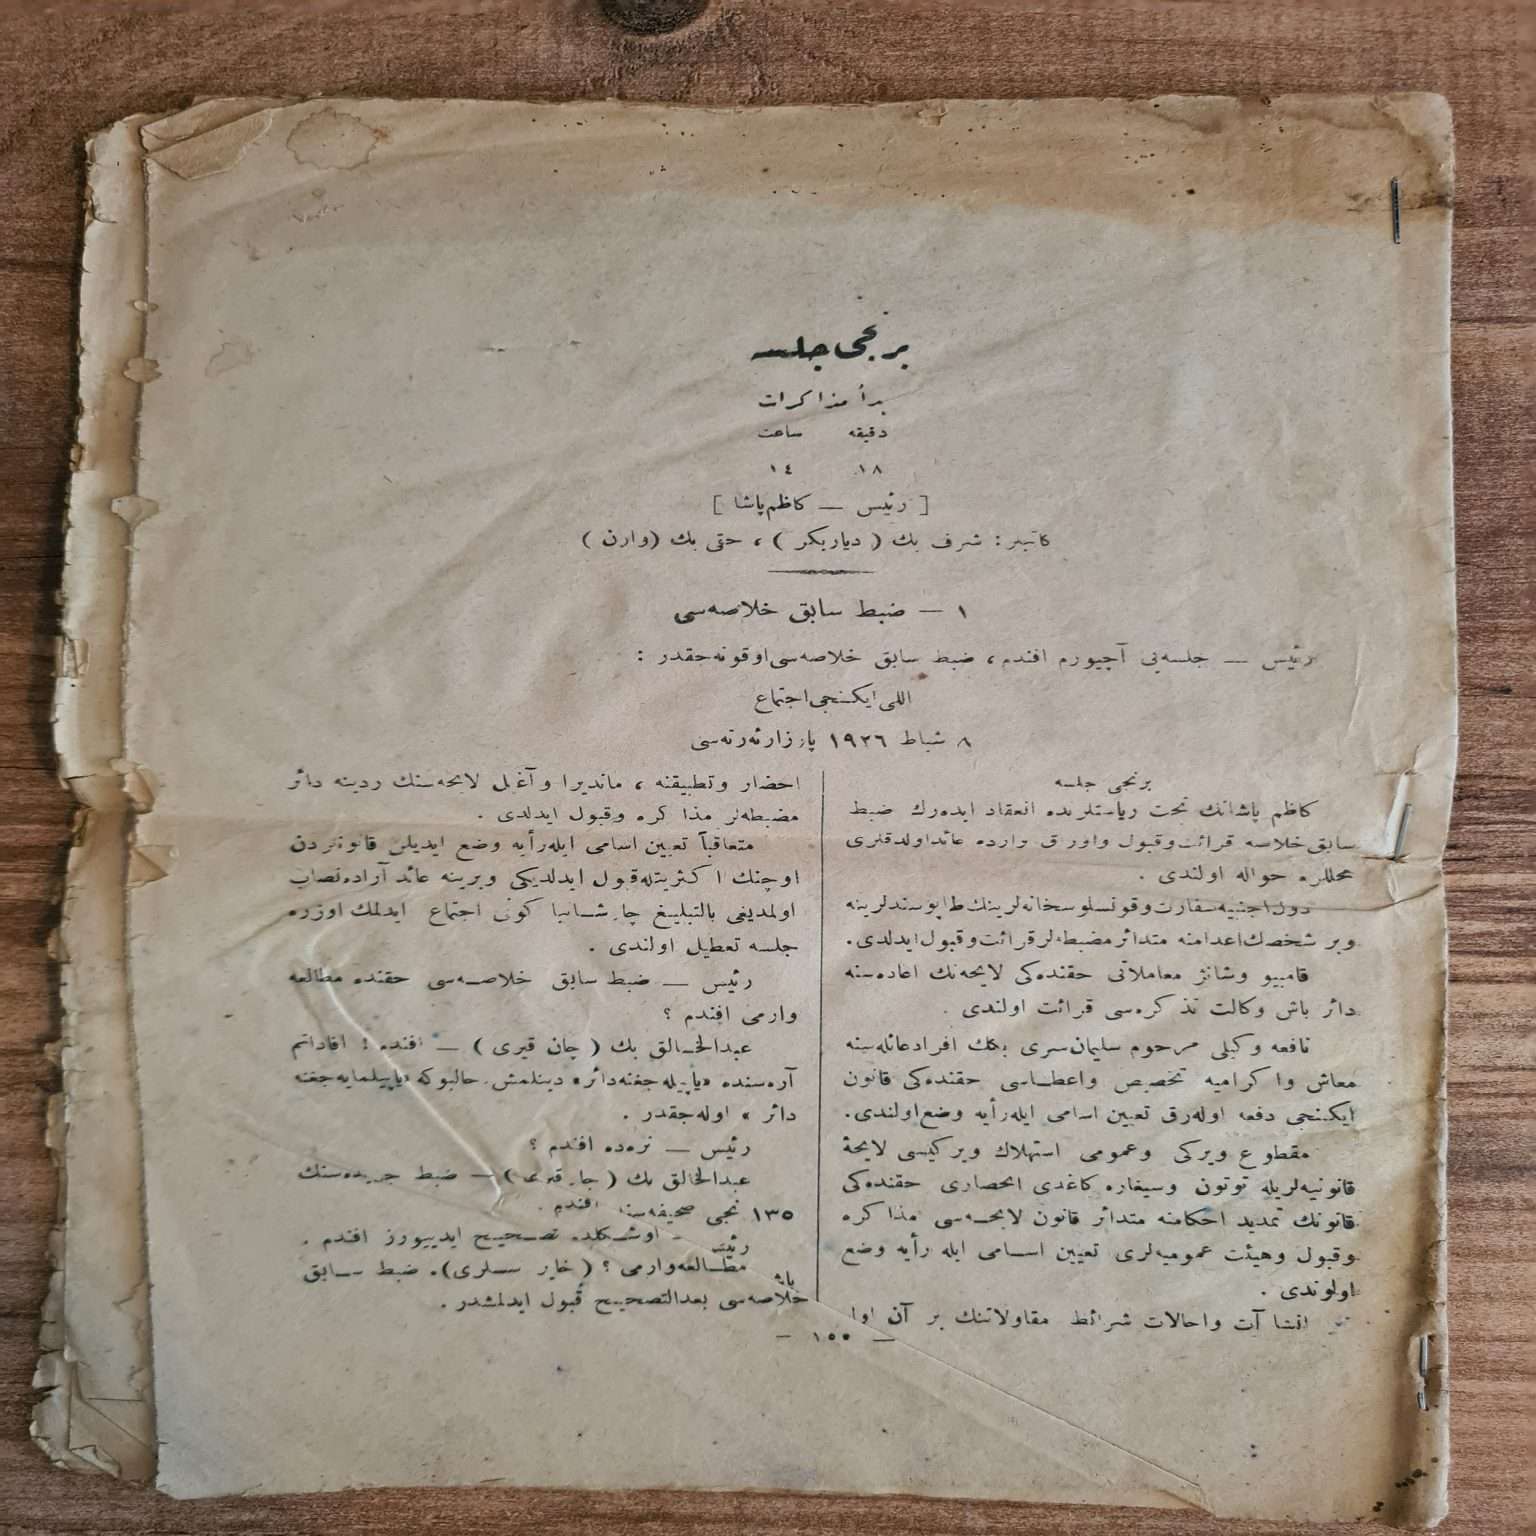 برنجی جلسه
بدأ مذاكرات
دقیقه ساعت
١٨ ١٤
[ رئیس — كاظم پاشا ]
كاتبلر : شرف بك ( دیاربكر ) ، حقی بك (وان )
١ — ضبط سابق خلاصه‌سی
رئیس — جلسه‌یی آچیورم افندم ، ضبط سابق خلاصه‌سی اوقونه‌جقدر :
اللی ایكنجی اجتماع
٨ شباط ١٩٢٦ پازارئرته‌سی
برنجی جلسه
كاظم پاشانك تحت ریاستلرنده انعقاد ایده‌رك ضبط
سابق خلاصه قرائت و قبول و اوراق وارده عائد اولدقلری
محللره حواله اولندی .
دول اجنبیه سفارت و قونسلوسخانه‌لرینك
وبر شخصك اعدامنه متدائر مضبطه‌لر قرائت و قبول ایدلدی.
قامبیو و معاملاتی حقنده‌كی لایحه‌نك اعاده‌سنه
دائر باش وكالت تذكره‌سی قرائت اولندی .
نافعه وكیلی مرحوم سلیمان سری بكك افراد عائله‌سنه
معاش و اكرامیه تخصیص واعطاسی حقنده‌كی قانون
ایكنجی دفعه اوله‌رق تعیین اسامی ایله رأیه وضع اولندی.
مقطوع ویركی وعمومی استهلاك ویركیسی لایحۀ
قانونیه‌لریله توتون وسیغاره كاغدی انحصاری حقنده‌كی
قانونك تمدید احكامنه متدائر قانون لایحه‌سی مذاكره
وقبول وهیئت عمومیه‌لری تعیین اسامی ایله رأیه وضع
اولوندی .
واحالات شرائط مقاولاتنك بر آن اول
احضار وتطبیقنه ، ماندیرا وآغیل لایحه‌سنك ردینه دائر
مضبطه‌لر مذاكره وقبول ایدلدی .
متعاقباً تعیین اسامی ایله رأیه وضع ایدیلن قانونلردن
اوچنك اكثریتله قبول ایدلدیكی وبرینه عائد آراده نصاب
اولمدیغی بالتبلیغ چارشانبا كونی اجتماع ایدلمك اوزره
جلسه تعطیل اولندی .
رئیس — ضبط سابق خلاصه‌سی حقنده مطالعه
وارمی افندم ؟
عبدالخالق بك ( چان قیری ) — افندم ! افاداتم
آره‌سنده «یاپیله‌جغنه دائر» دینلمش. حالبوكه «یاپیلمایه‌جغنه
دائر » اوله‌جقدر .
رئیس — نره‌ده افندم ؟
عبدالخالق بك ( چان قیری ) — ضبط جریده‌سنك
١٣٥ نجی صحیفه‌سنده افندم .
رئیس — اوشكلده تصحیح ایدییورز افندم .
باشقه مطالعه وارمی ؟ ( خایر سسلری). ضبط سابق
خلاصه‌سی بعدالتصحیح قبول ایدلمشدر .
— ١٥٥ —